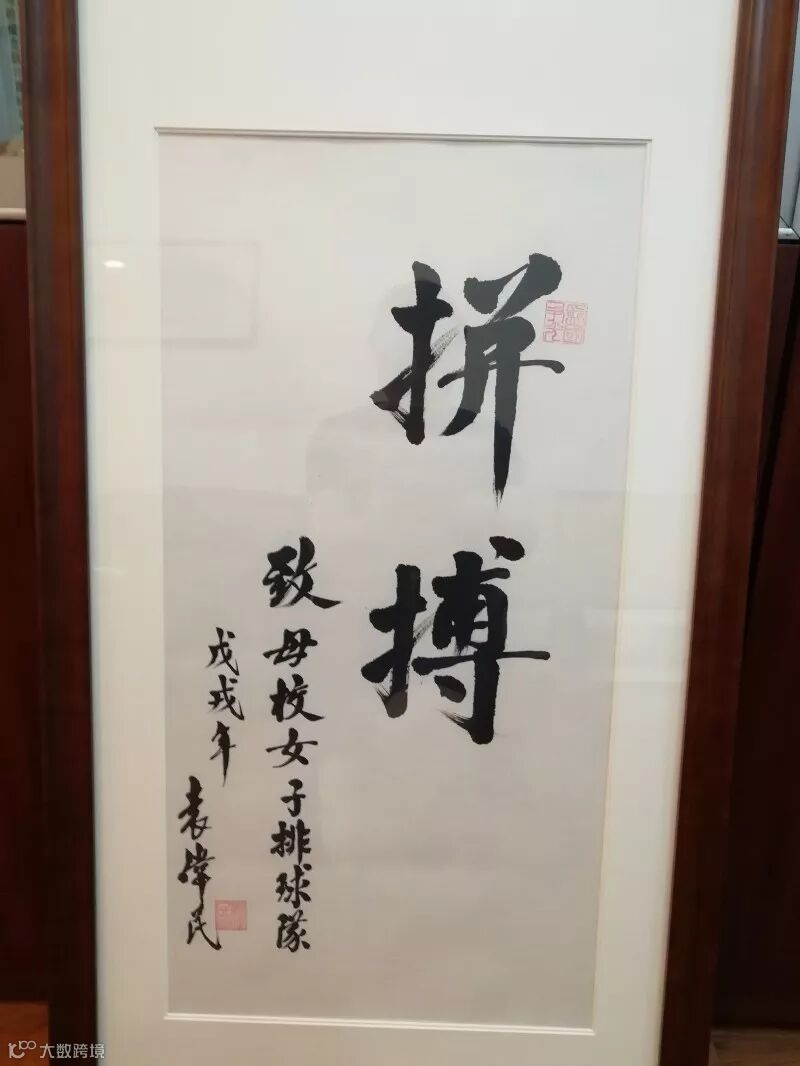 拼搏
致母校女子排球隊
戊戌年
袁偉民
大数跨境